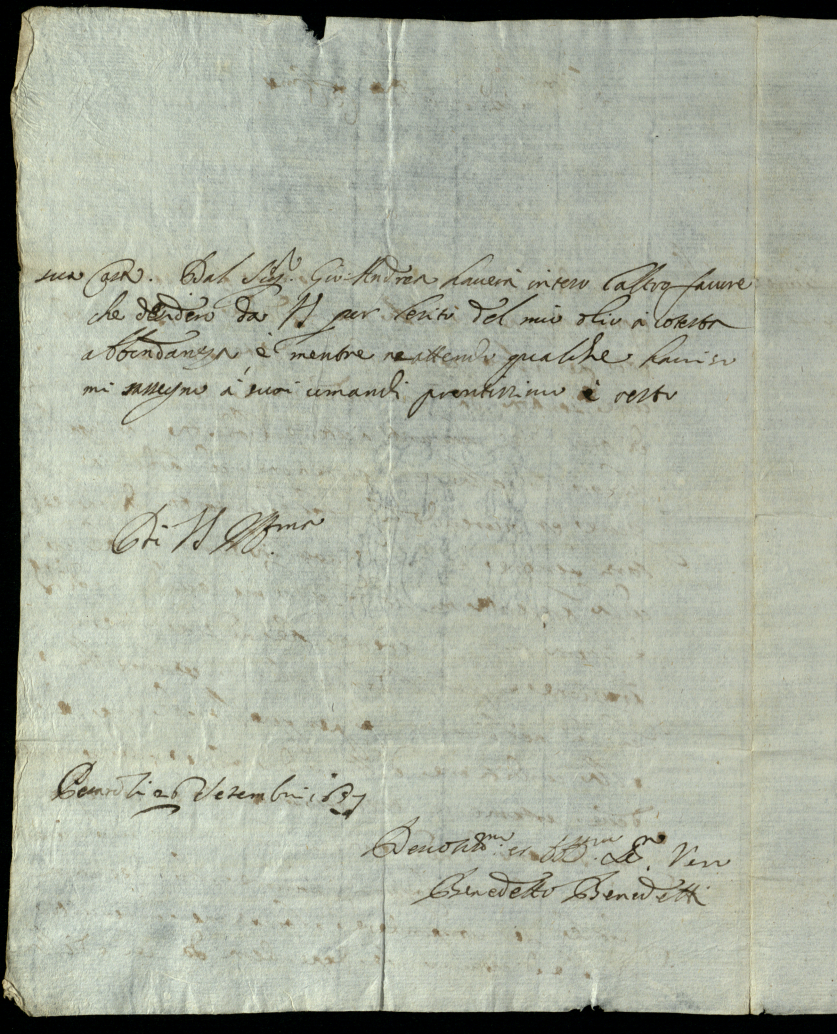 sua casa. Dal Sigr. Gio: Andrea haverà inteso l'altro favore
che desidero da VS per l'esito del mio olio a cotesta
abbondanza è mentre ne attendo qualche haviso
mi rassegno à suoi comandi prontissimo è resto
Di VS Illma
Pesaro li 26 Dezembre 1657
Devotmo et Serre Vero
Benedetto Benedetti